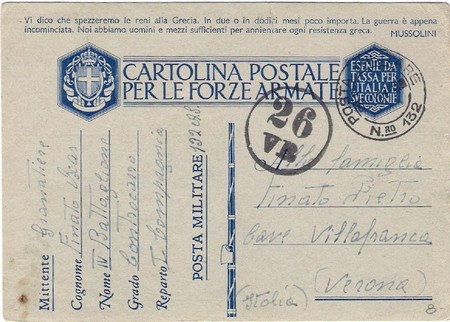 Vi dico che spezzeremo le reni alla Grecia. In due o in dodici mesi poco importa. La guerra è appena
incominciata. Noi abbiamo uomini e mezzi sufficienti per annientare ogni resistenza greca.
MUSSOLINI
CARTOLINA POSTALE
PER LE FORZE ARMATE
ESENTE DA
TASSA PER
L'ITALIA
SUE COLONIE
POSTA
N.RO 132
26
VR
Mittente Granatiere
Cognome Finato
Nome IV Battaglione
Grado
Reparto I Compagnia
POSTA MILITARE 132
Alla famiglia
Finato Pietro
Cave Villafranca
(Verona)
(Italia)
8-